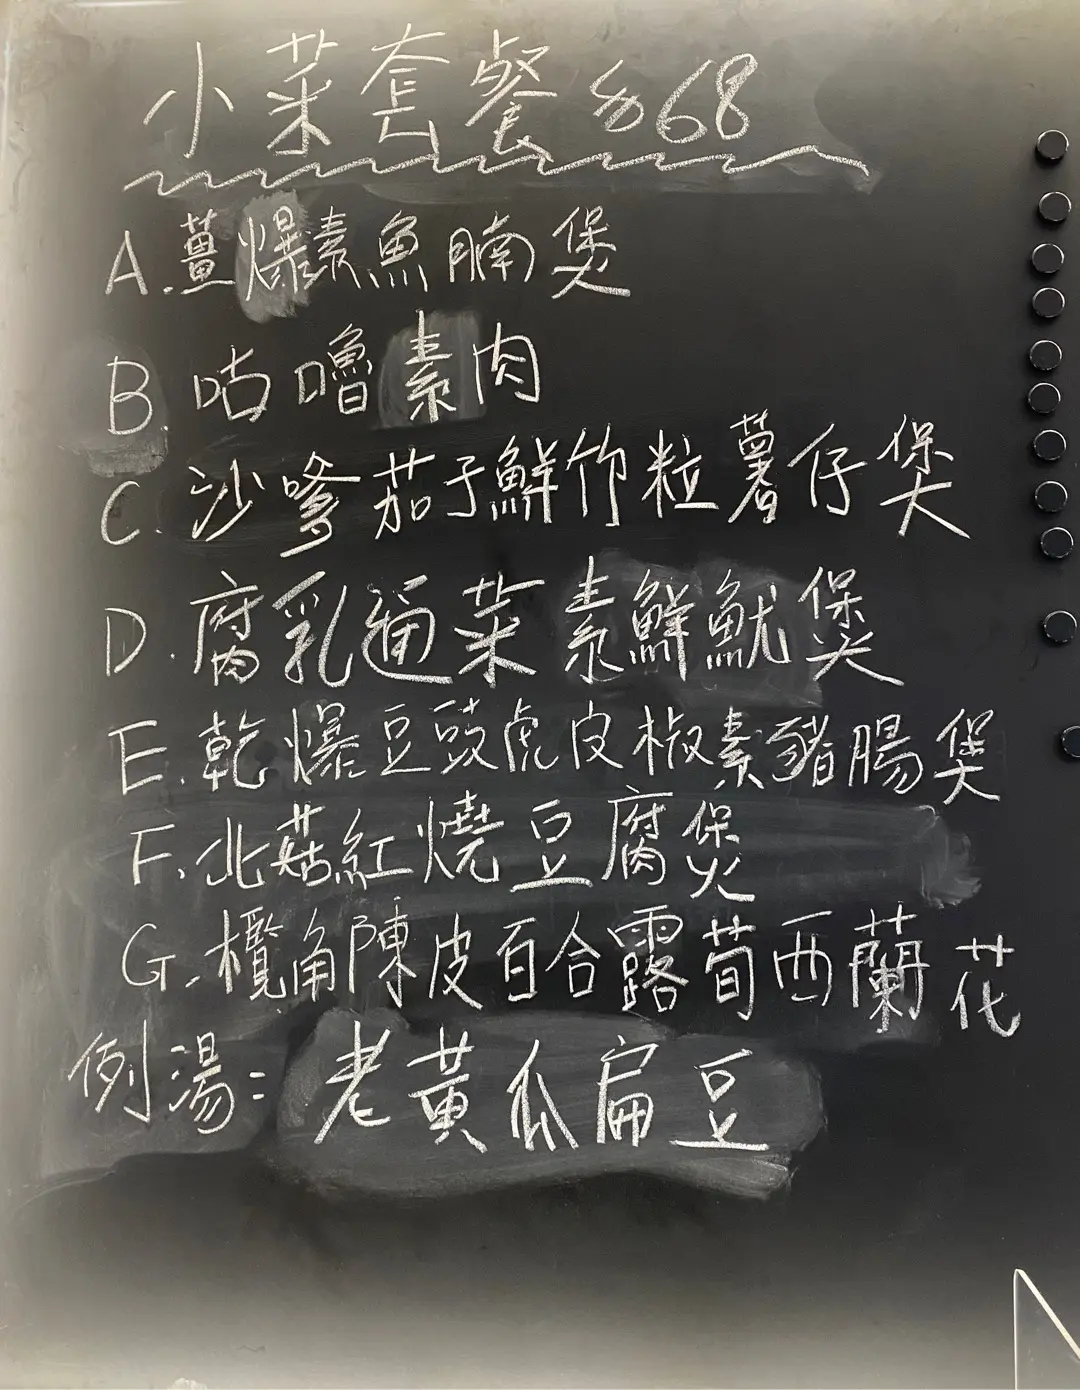 小菜套餐 $68
A.薑爆素魚腩煲
B.咕嚕素肉
C.沙嗲茄子鮮竹粒薯仔煲
D.腐乳通菜素鮮魷煲
E.乾爆豆豉虎皮椒素豬腸煲
F.北菇紅燒豆腐煲
G.欖角陳皮百合露荀西蘭花
例湯:老黃瓜扁豆